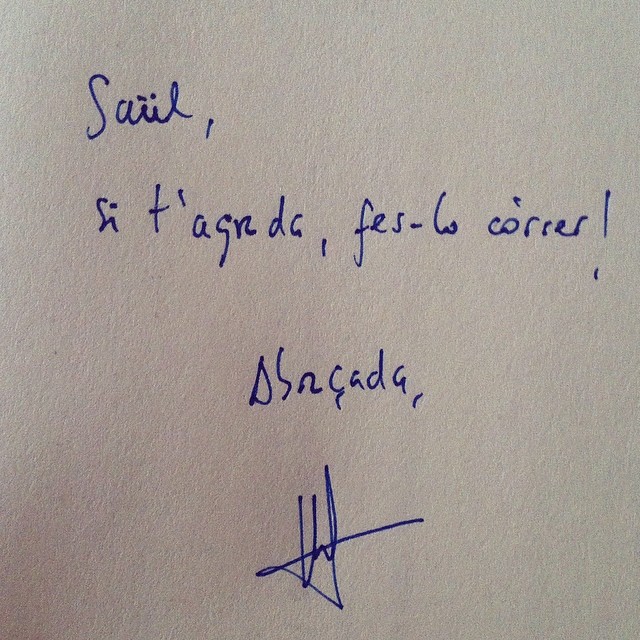 Saül,
si t'agrada, fes-lo córrer!
Abraçada,